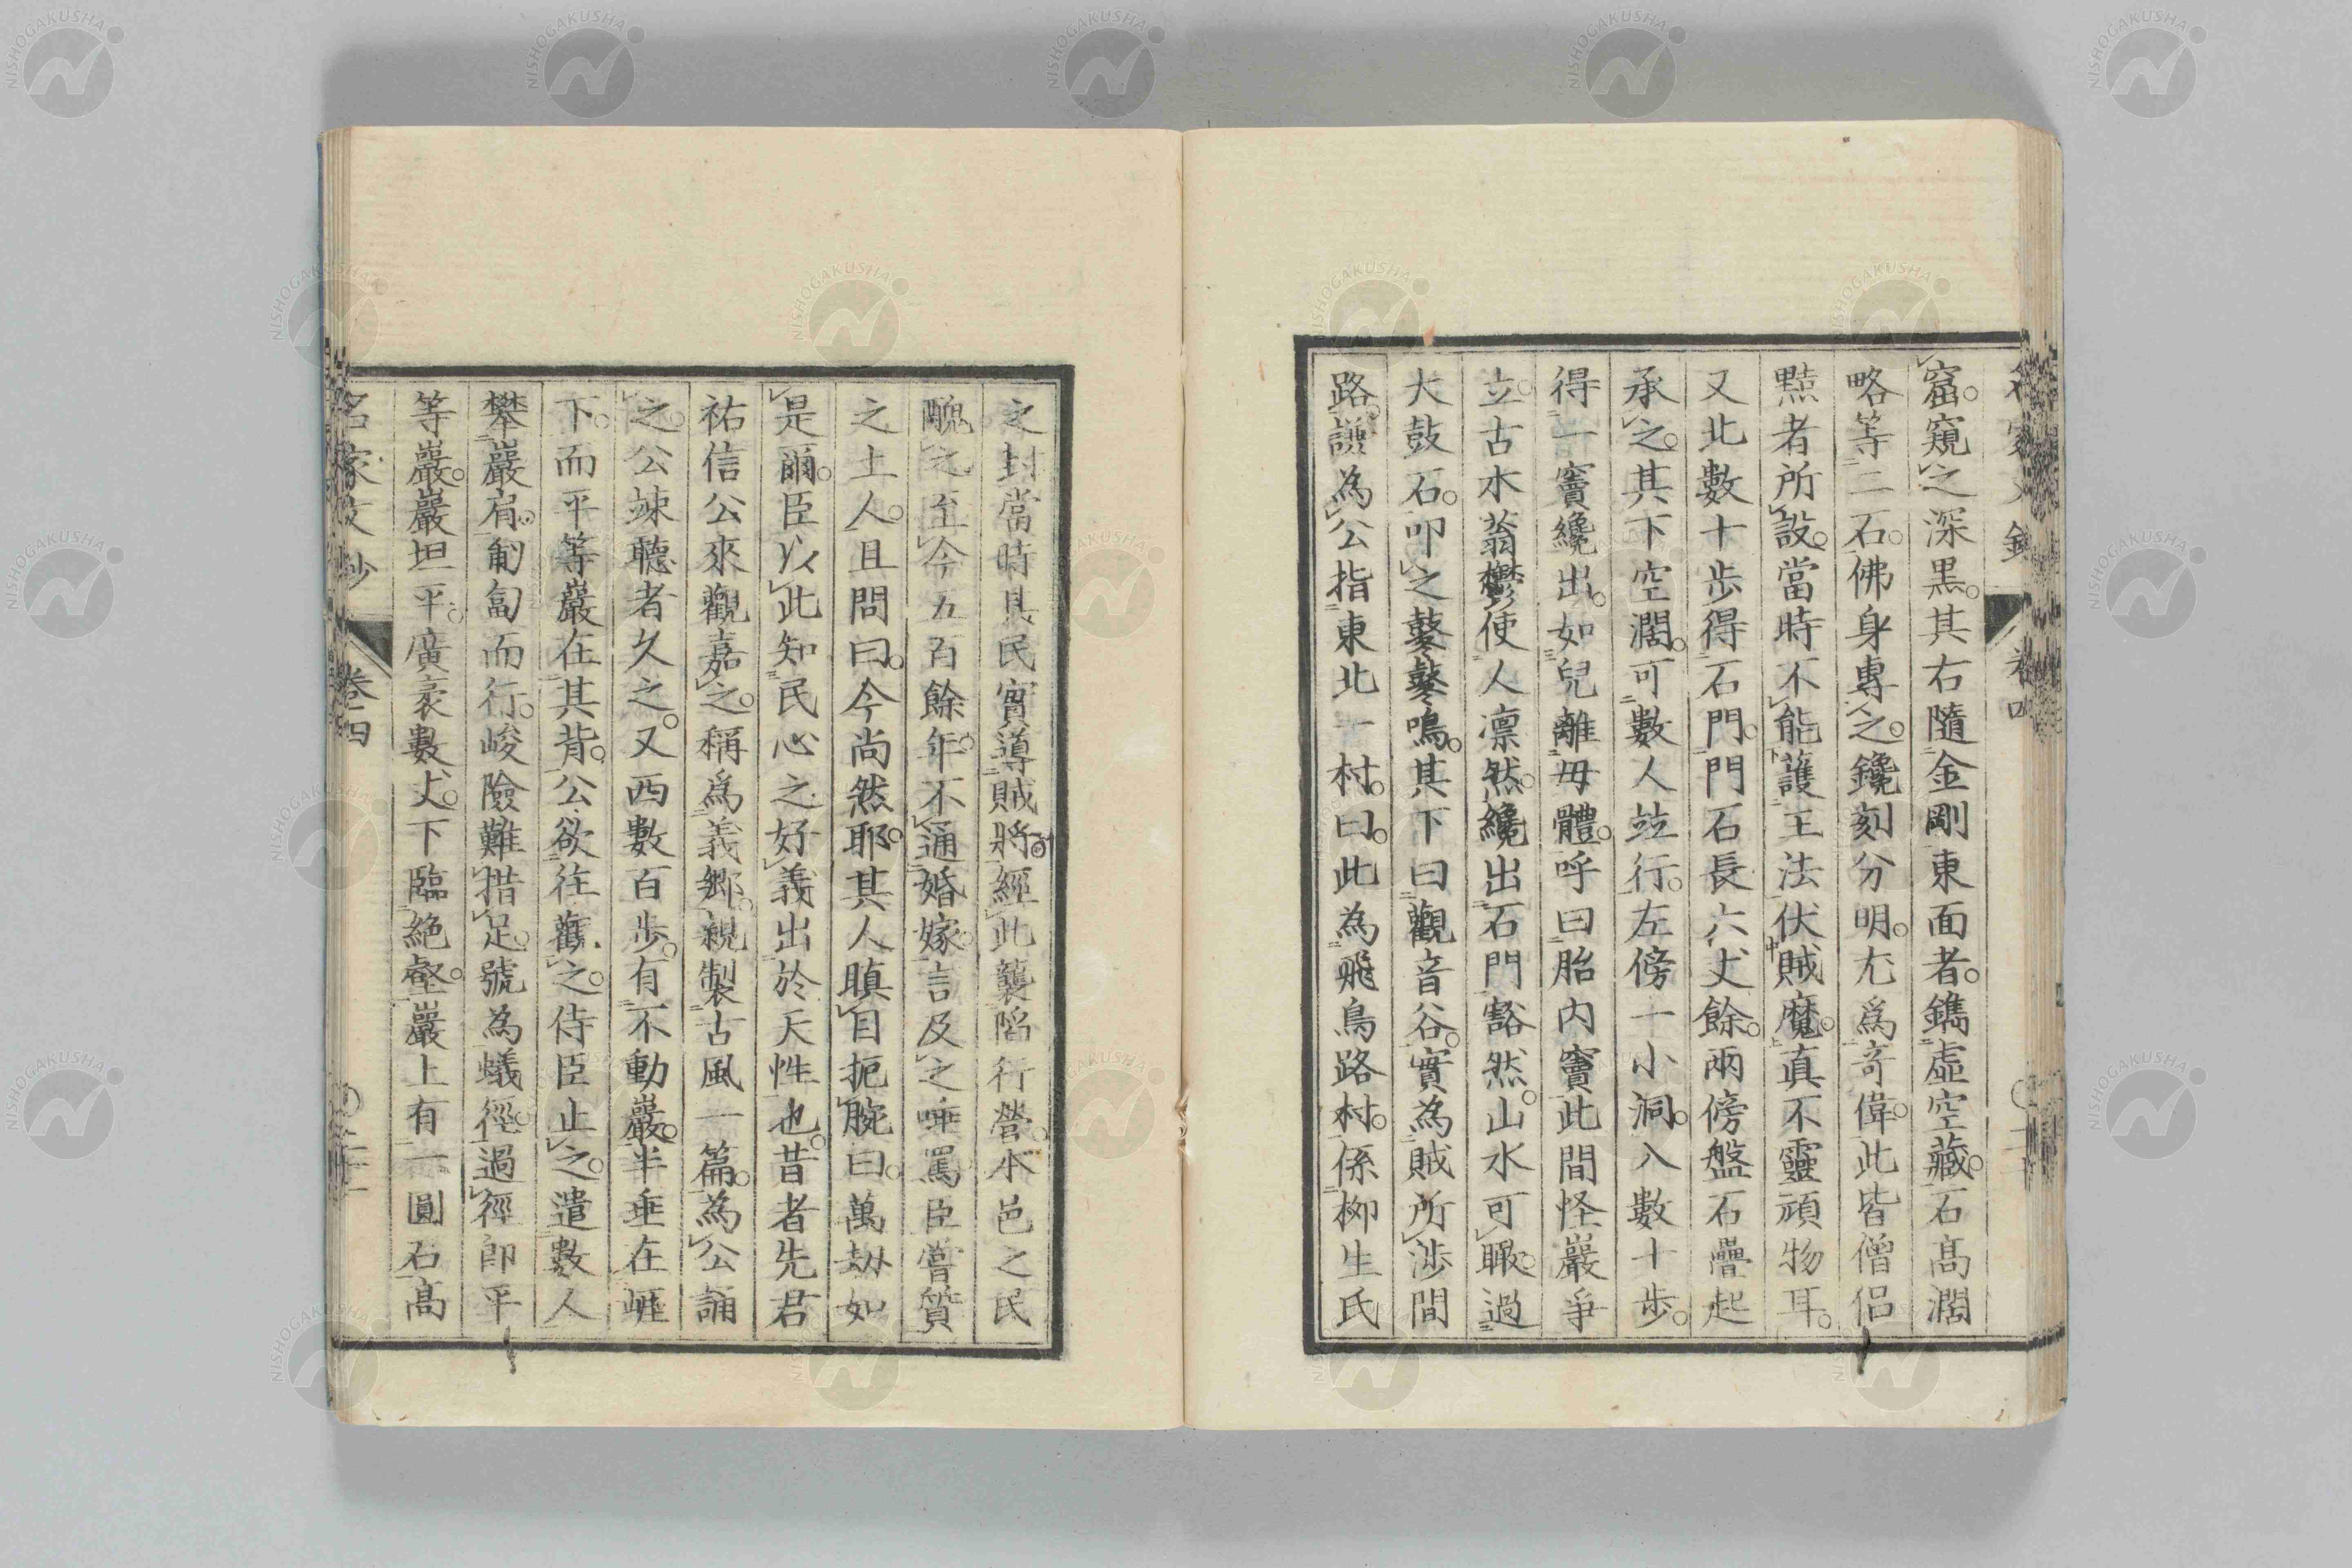 窟。窺之深黒。其右隨金剛東面者。鐫虛空藏。石高濶
略等二石。佛身專之。鑱刻分明。尤爲奇偉。此皆僧侶
㸃者所設。當時不能護王法伏賊魔。真不靈頑物耳。
又北數十歩得石門。門石長六丈餘。兩傍盤石疊起
承之。其下空濶。可數人竝行。左傍一小洞。入數十歩。
得一竇纔出。如兒離毋體。呼曰胎内竇此間怪巖爭
立。古木蓊鬱使人凛然。纔出石門豁然。山水可瞰。過
大鼓石。叩之鼕鼕鳴。其下曰觀音谷。實為賊所涉間
路。謙為公指東北一村。曰。此為飛鳥路村。係柳生氏
之封當時其民實導賊將經此襲陷行營。本邑之民
醜之至今五百餘年。不通婚嫁。言及之唾罵臣嘗質
之土人。且問曰。今尚然耶。其人瞋目扼腕曰。萬劫如
是爾。臣以此知民心之好義出於天性也。昔者先君
祐信公來觀嘉之。稱爲義郷。親製古風一篇。為公誦
之。公竦聽者久之。又西數百歩。有不動巖。半垂在崕
下。而平等巖在其背。公欲往觀之。侍臣止之。遣數人
攀巖肩。匍匐而行。峻險難措足。號為蟻徑。過徑即平
等巖。巖坦平。廣袤數丈。下臨絶壑。巖上有一圓石高
名家文抄
卷四
卷四